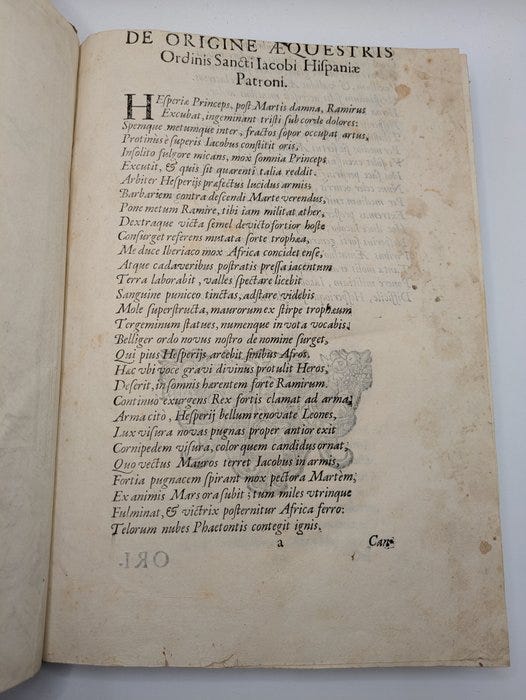 DE ORIGINE ÆQUESTRIS
Ordinis Sancti Iacobi Hispaniæ
Patroni.
HEsperiæ Princeps, post Martis damna, Ramirus
Excubat, ingeminant tristi sub corde dolores:
Spemque metumque inter, fractos sopor occupat artus,
Protinus è superis Iacobus constitit oris,
Insolito fulgore micans, mox somnia Princeps
Excutit, & quis sit quærenti talia reddit.
Arbiter Hesperijs præfectus lucidus armis,
Barbariem contra descendi Marte verendus,
Pone metum Ramire, tibi iam militat æther,
Dextraque victa semel devicto fortior hoste
Consurget referens mutata sorte trophæa,
Me duce Iberiaco mox Africa concidet ense,
Atque cadaveribus postratis pressa iacentum
Terra laborabit, valles spectare licebit
Sanguine puniceo tinctas, adstare videbis
Mole superstructa, maurorum ex stirpe trophæum
Tergeminum statues, numenque in vota vocabis,
Belliger ordo novus nostro de nomine surget,
Qui pius Hesperijs arcebit finibus Afros,
Hæc vbi voce gravi divinus protulit Heros,
Deserit, in somnis hærentem forte Ramirum.
Continuo exurgens Rex fortis clamat ad arma,
Arma citò, Hesperij bellum renovate Leones,
Lux visura novas pugnas properantior exit
Cornipedem visura, color quem candidus ornat,
Quo vectus Mauros terret Iacobus in armis,
Fortia pugnacem spirant mox pectora Martem,
Ex animis Mars ora subit; tum miles vtrinque
Fulminat, & victrix posternitur Africa ferro:
Telorum nubes Phaetontis contegit ignis,
a
Can-
ORI-